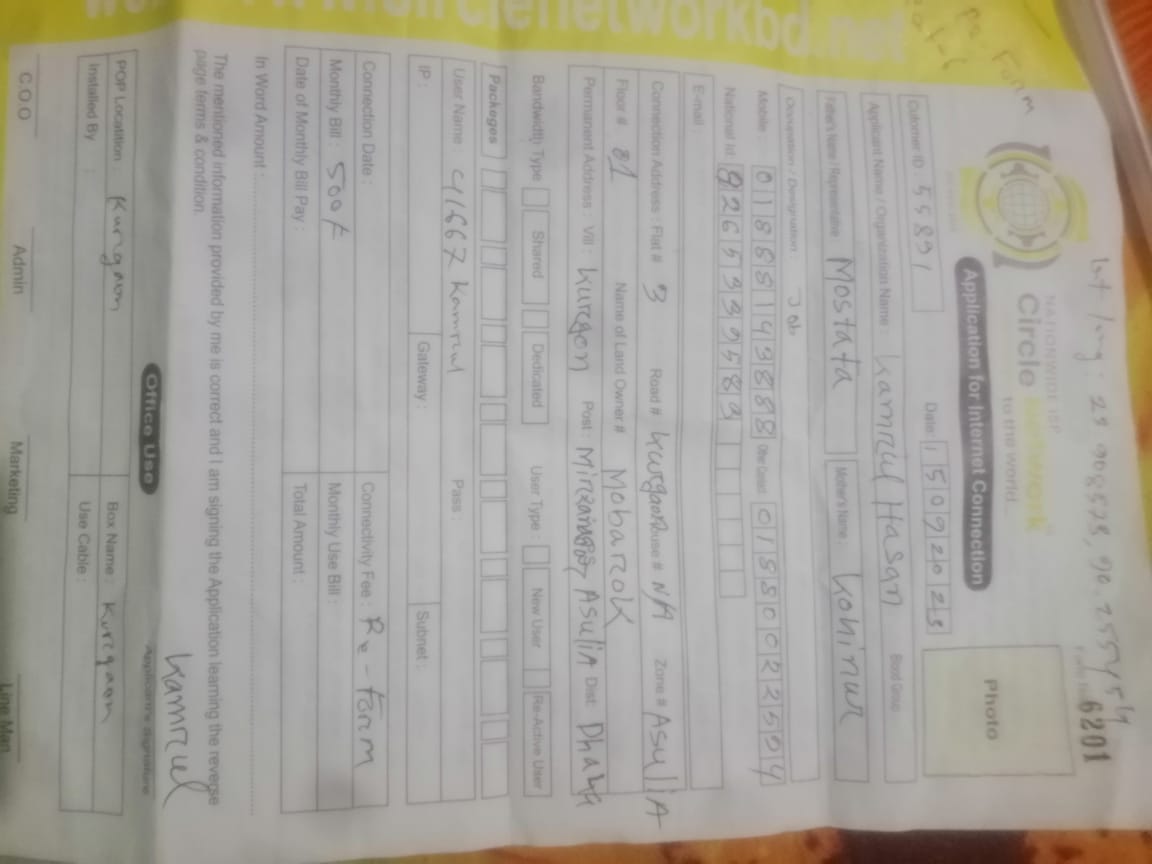 circlenetworkbd.net
Re Form
lat/long: 23.908573, 90.255454
NATIONWIDE ISP
Circle Network
to the world...
Form No 6201
Application for Internet Connection
Photo
Customer ID : 55891
Date: 15092023
Applicant Name / Organization Name : Kamrul Hasan
Blood Group :
Father's Name / Representative : Mostafa
Mother's Name : Kohinur
Occupation / Designation : Job
Mobile : 01888143888
Other Contact : 01880022504
National Id :
E-mail :
Connection Address : Flat # 3 Road # Kurgaon House # N/A Zone # AsuliA
Floor # 81 Name of Land Owner # Mobarok
Permanent Address : Vill : Kurgon Post : Mirzanagar, AsuliA Dist: Dhaka
Bandwidth Type Shared Dedicated User Type : New User Re-Active User
Packages
User Name C41667 Kamrul Pass :
IP : Gateway : Subnet :
Connection Date : Connectivity Fee : Re-Form
Monthly Bill : 500/- Monthly Use Bill :
Date of Monthly Bill Pay : Total Amount :
In Word Amount :
The mentioned information provided by me is correct and I am signing the Application learning the reverse
page terms & condition.
Kamrul
Applicant's Signature
Office Use
POP Locatition : Kurgaon Box Name : Kurgaon
Installed By : Use Cable :
C.O.O Admin Marketing Line Man